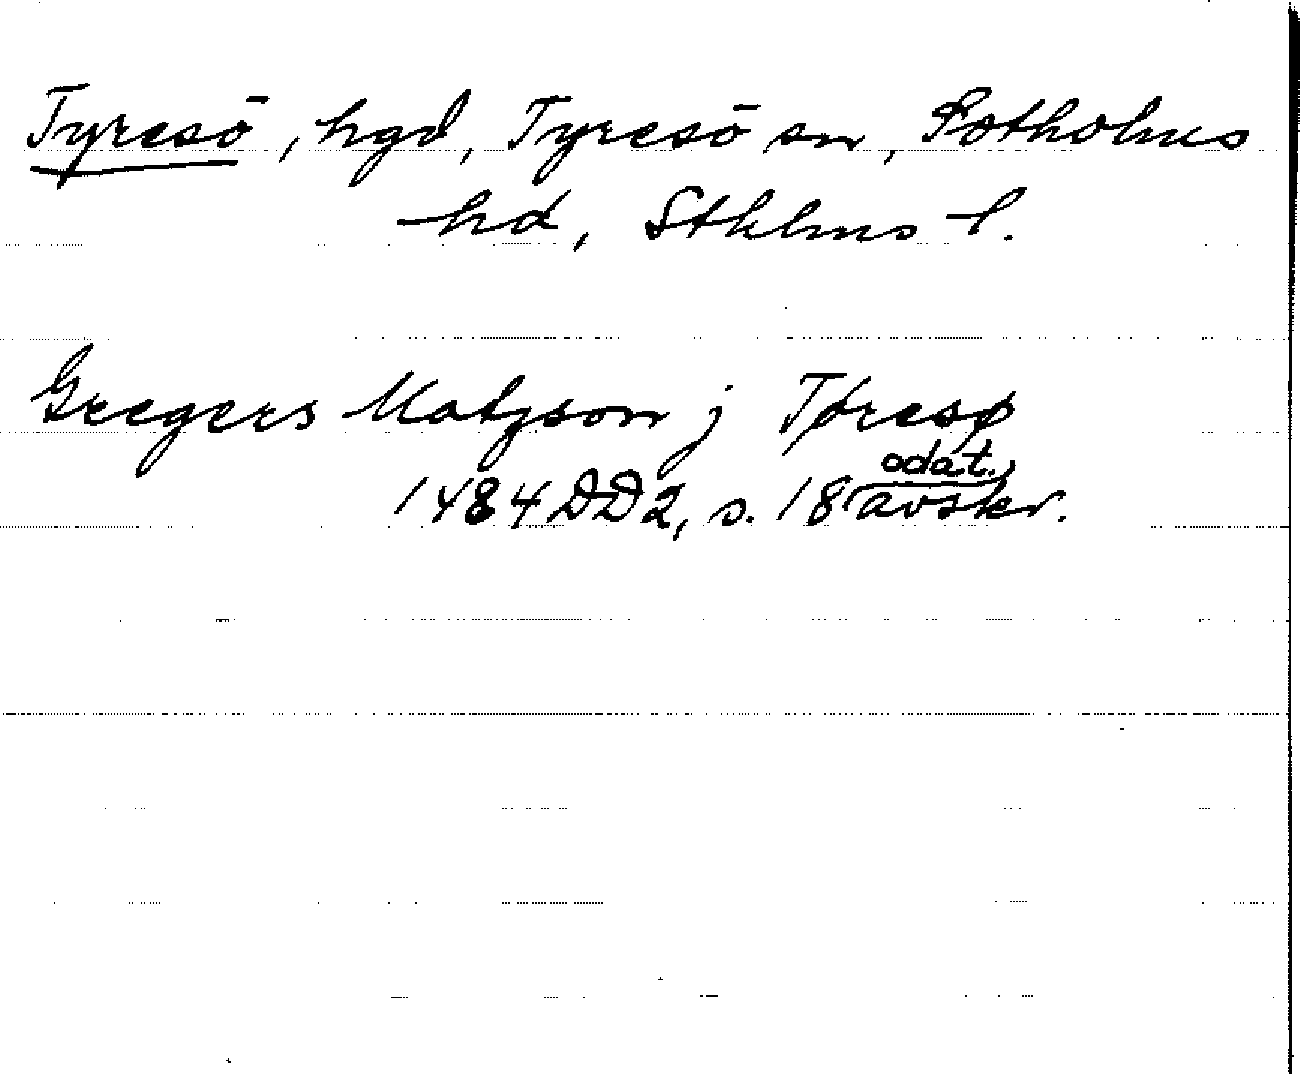 Tyresö, hgd, Tyresö sn, Sotholms
hd, Sthlms l.
Gregers Matzson j Tøresø
odat.,
1484 DD2, s. 18 avskr.